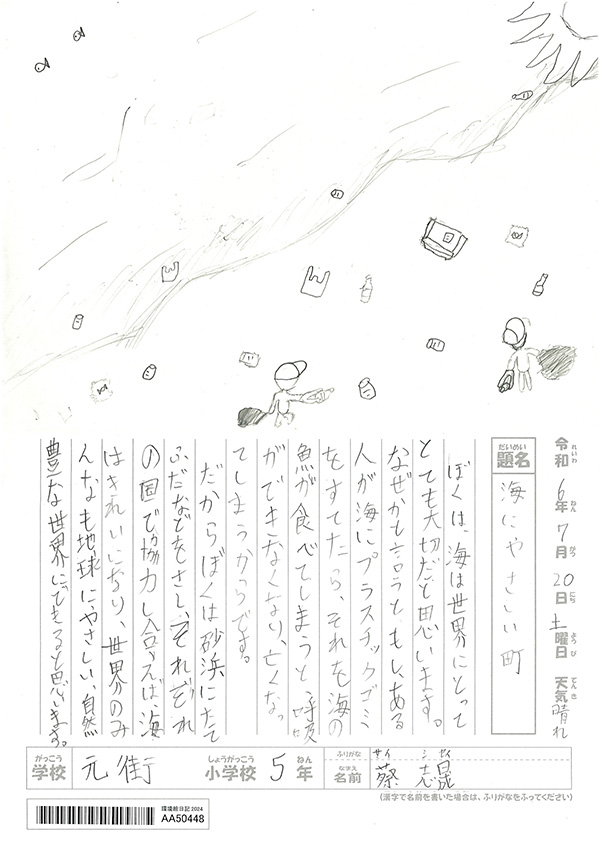 令和6年7月20日土曜日 天気晴れ
れいわ ねん がつ にち ようび てんき
だいめい
題名 海にやさしい町
ぼくは、海は世界にとって
とても大切だと思います。
なぜかも言うと、もし、ある
人が海にプラスチックゴミ
をすてたら、それを海の
魚が食べてしまうと、呼吸
ができなくなり、亡くなっ
てしまうからです。
だからぼくは砂浜にたて
ふだなどをさし、それぞれ
の国で協力し合えば、海
はきれいになり、世界のみ
んなも地球にやさしい、自然
豊な世界にできると思います。
がっこう しょうがっこう ねん ふりがな サイ シセイ
学校 元街 小学校 5年 なまえ 名前 蔡志晟
(漢字で名前を書いた場合は、ふりがなをふってください)
環境絵日記2024
AA50448